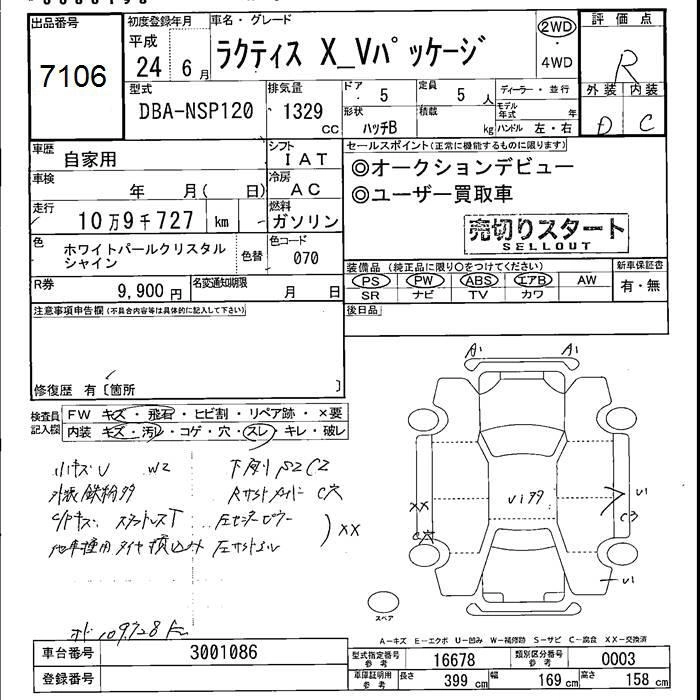 出品番号
7106
初度登録年月
平成
24 6 月
車名・グレード
ラクティス X_Vパッケージ
2WD
・
4WD
評価点
R
外装 内装
D C
型式
DBA-NSP120
排気量
1329
CC
ドア
5
定員
5 人
形状
ハッチB
積載
kg
ディーラー・並行
モデル
年式 年
ハンドル 左・右
車歴
自家用
シフト
IAT
車検
年 月( 日)
冷房
AC
走行
10万9千727 km
燃料
ガソリン
色
ホワイトパールクリスタル
シャイン
色替
色コード
070
R券
9,900 円
名変通知期限
月 日
セールスポイント(正常に機能するものに限ります)
◎オークションデビュー
◎ユーザー買取車
売切りスタート
SELLOUT
装備品(純正品に限り○をつけてください)
PS PW ABS エアB AW
SR ナビ TV カワ
新車保証書
有・無
後日品
注意事項申告欄(不具合内容等は具体的に記入して下さい)
修復歴 有〔箇所 〕
検査員
記入欄
FW キズ・飛石・ヒビ割・リペア跡・×要
内装 キズ・汚レ・コゲ・穴・スレ・キレ・破レ
小キズU W2
外装鉄粉多
XX
A1 A1
XX
U1
C3
U1
スペア
A-キズ E-エクボ U-凹み W-補修跡 S-サビ C-腐食 XX-交換済
車台番号
3001086
登録番号
型式指定番号
参考
16678
類別区分番号
参考
0003
車庫証明用
参考
長さ 399 cm
幅 169 cm
高さ 158 cm